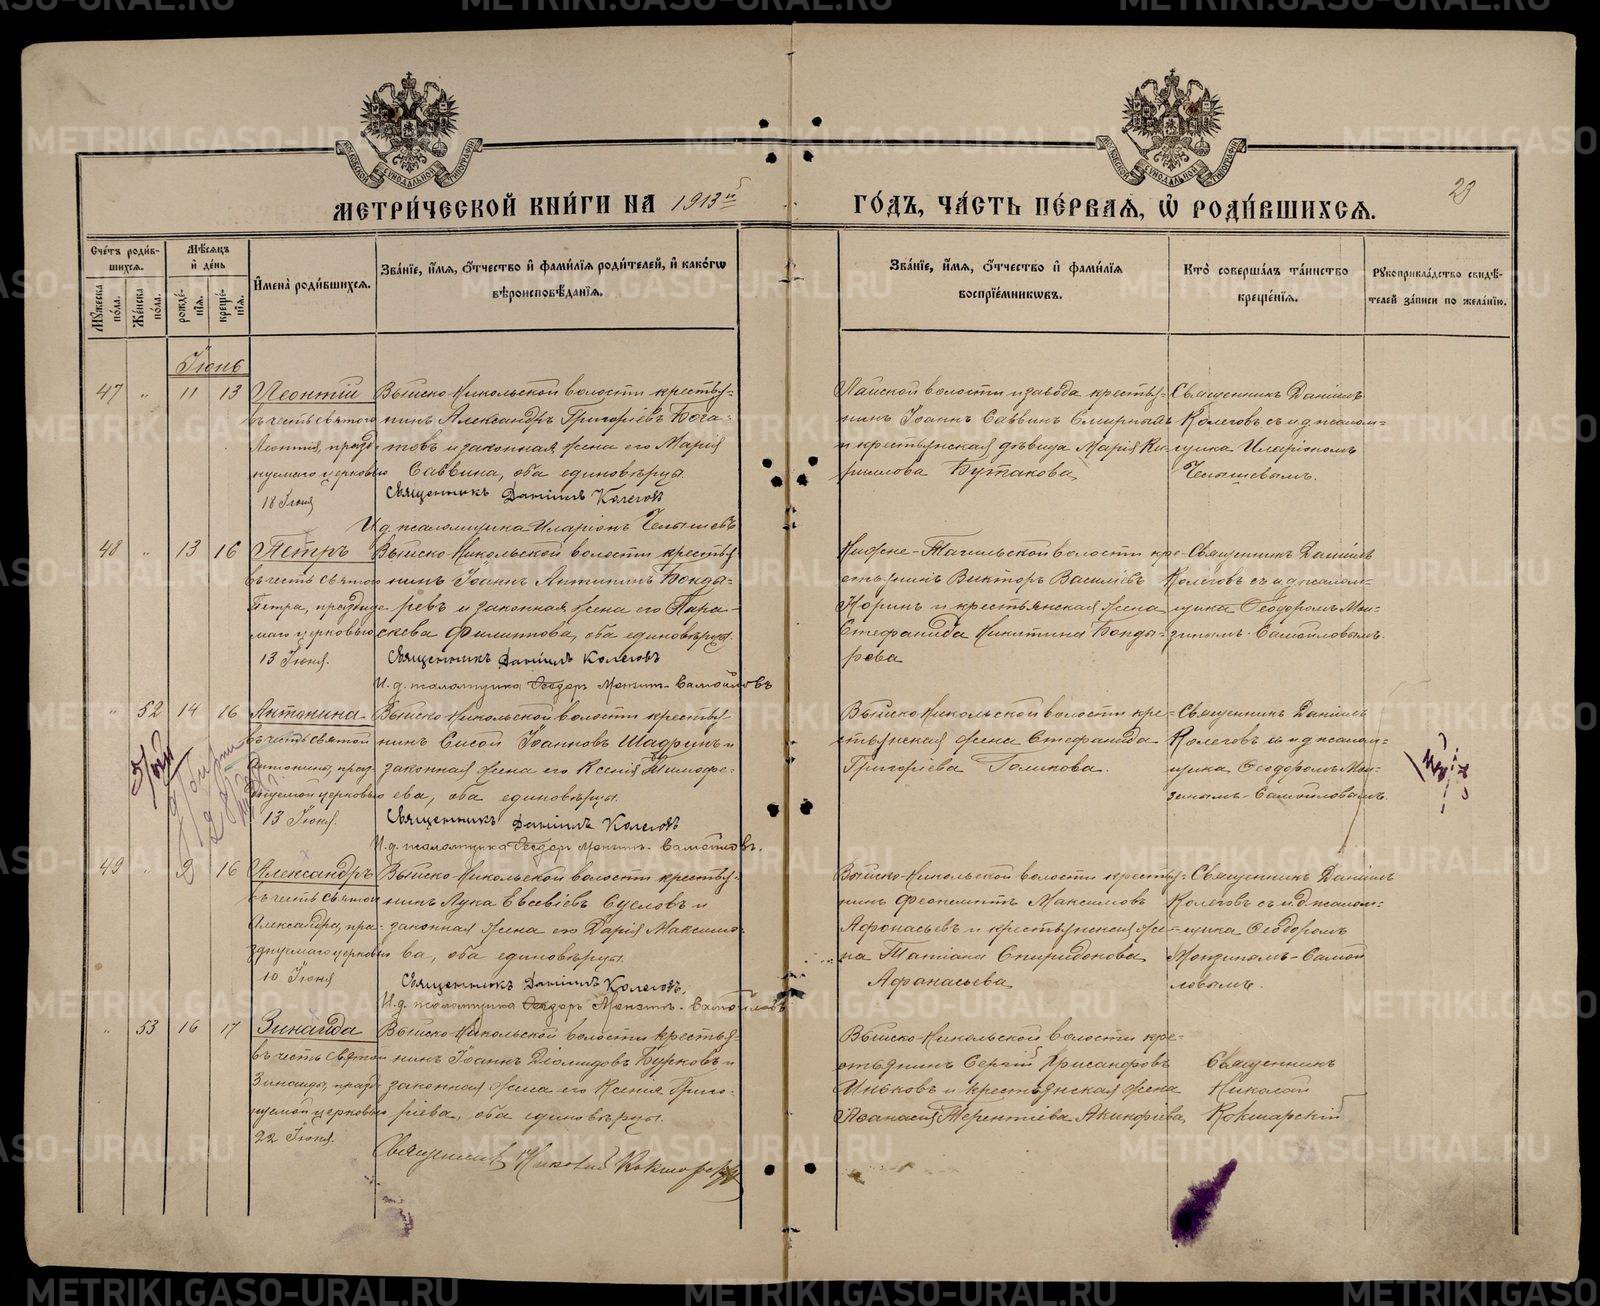 МЕТРИ́ЧЕСКОЙ КНИ́ГИ НА 1913й
ГО́ДЪ, ЧА́СТЬ ПЕ́РВАѦ, Ѡ҆ РОДИ́ВШИХСѦ.
23
Сче́тъ роди́в-
шихсѧ.
Мꙋ́жеска по́ла.
Же́нска по́ла.
Мѣ́сѧцъ
и҆ де́нь
рожде́-
нїѧ.
креще́-
нїѧ.
И҆мена̀ роди́вшихсѧ.
Зва́нїе, и҆́мѧ, ѻ҆́тчество и҆ фами́лїѧ роди́телей, и҆ како́гѡ
вѣроисповѣ́данїѧ.
Зва́нїе, и҆́мѧ, ѻ҆́тчество и҆ фами́лїѧ
воспрїе́мникѡвъ.
Кто̀ соверша́лъ та́инство
креще́нїѧ.
Рꙋкоприкла́дство свидѣ́-
телей за́писи по жела́нїю.
Іюнь
47 " 11 13 Леонтій
въ честь святого
Леонтія, празд-
нуемаго церковью
18 Іюня
Выйско-Никольской волости крестья-
нинъ Александръ Григоріевъ Бога-
товъ и законная жена его Марія
Саввина, оба единовѣрцы.
Священникъ Даніилъ Колеговъ
И.д. псаломщика Иларіонъ Челышевъ
Лайской волости и завода крестья-
нинъ Іоаннъ Саввинъ Смирныхъ
и крестьянская дѣвица Марія Ки-
риллова Бутакова
Священникъ Даніилъ
Колеговъ съ и.д. псалом-
щика Иларіономъ
Челышевымъ.
48 " 13 16 Петръ
въ честь святого
Петра, празднуе-
маго церковью
13 Іюня.
Выйско-Никольской волости крестья-
нинъ Іоаннъ Антипинъ Бонды-
ревъ и законная жена его Пара-
скева Филиппова, оба единовѣрцы.
Священникъ Даніилъ Колеговъ
И.д. псаломщика Ѳеодоръ Мокин-Самойловъ
Нижне-Тагильской волости кре-
стьянинъ Викторъ Василіевъ
Норинъ и крестьянская жена
Стефанида Никитина Бонды-
рева
Священникъ Даніилъ
Колеговъ съ и.д. псалом-
щика Ѳеодоромъ Мок-
зинымъ-Самойловымъ.
" 52 14 16 Антонина
въ честь святой
Антонины, праз-
днуемой церковью
13 Іюня.
Выйско-Никольской волости крестья-
нинъ Сисой Іоанновъ Шадринъ и
законная жена его Ксенія Тимофе-
ева, оба единовѣрцы.
Священникъ Даніилъ Колеговъ
И.д. псаломщика Ѳеодоръ Мокин-Самойловъ.
Выйско-Никольской волости кре-
стьянская жена Стефанида
Григоріева Голикова.
Священникъ Даніилъ
Колеговъ и и.д. псалом-
щика Ѳеодоромъ Мок-
зинымъ-Самойловымъ.
49 " 9 16 Александръ
въ честь святого
Александра, пра-
зднуемаго церковью
10 Іюня
Выйско-Никольской волости крестья-
нинъ Лука Евсевіевъ Сусловъ и
законная жена его Дарія Максимо-
ва, оба единовѣрцы.
Священникъ Даніилъ Колеговъ.
И.д. псаломщика Ѳеодоръ Мокзин-Самойловъ
Выйско-Никольской волости крестья-
нинъ Феопемптъ Максимовъ
Афонасьевъ и крестьянская же-
на Татіана Спиридонова
Афонасьева
Священникъ Даніилъ
Колеговъ съ и.д. псалом-
щика Ѳеодоромъ
Мокзинымъ-Самой
ловымъ.
" 53 16 17 Зинаида
въ честь святой
Зинаиды, празд-
нуемой церковью
22 Іюня.
Выйско-Никольской волости крестья-
нинъ Іоаннъ Діомидовъ Бурковъ и
законная жена его Ксенія Григо-
ріева, оба единовѣрцы.
Священникъ Николай Кокшарскій
Выйско-Никольской волости кре-
стьянинъ Сергій Хрисанфовъ
Иньковъ и крестьянская жена
Аѳанасія Терентіева Акинфіева
Священникъ
Николай
Кокшарскій
METRIKI.GASO-URAL.RU